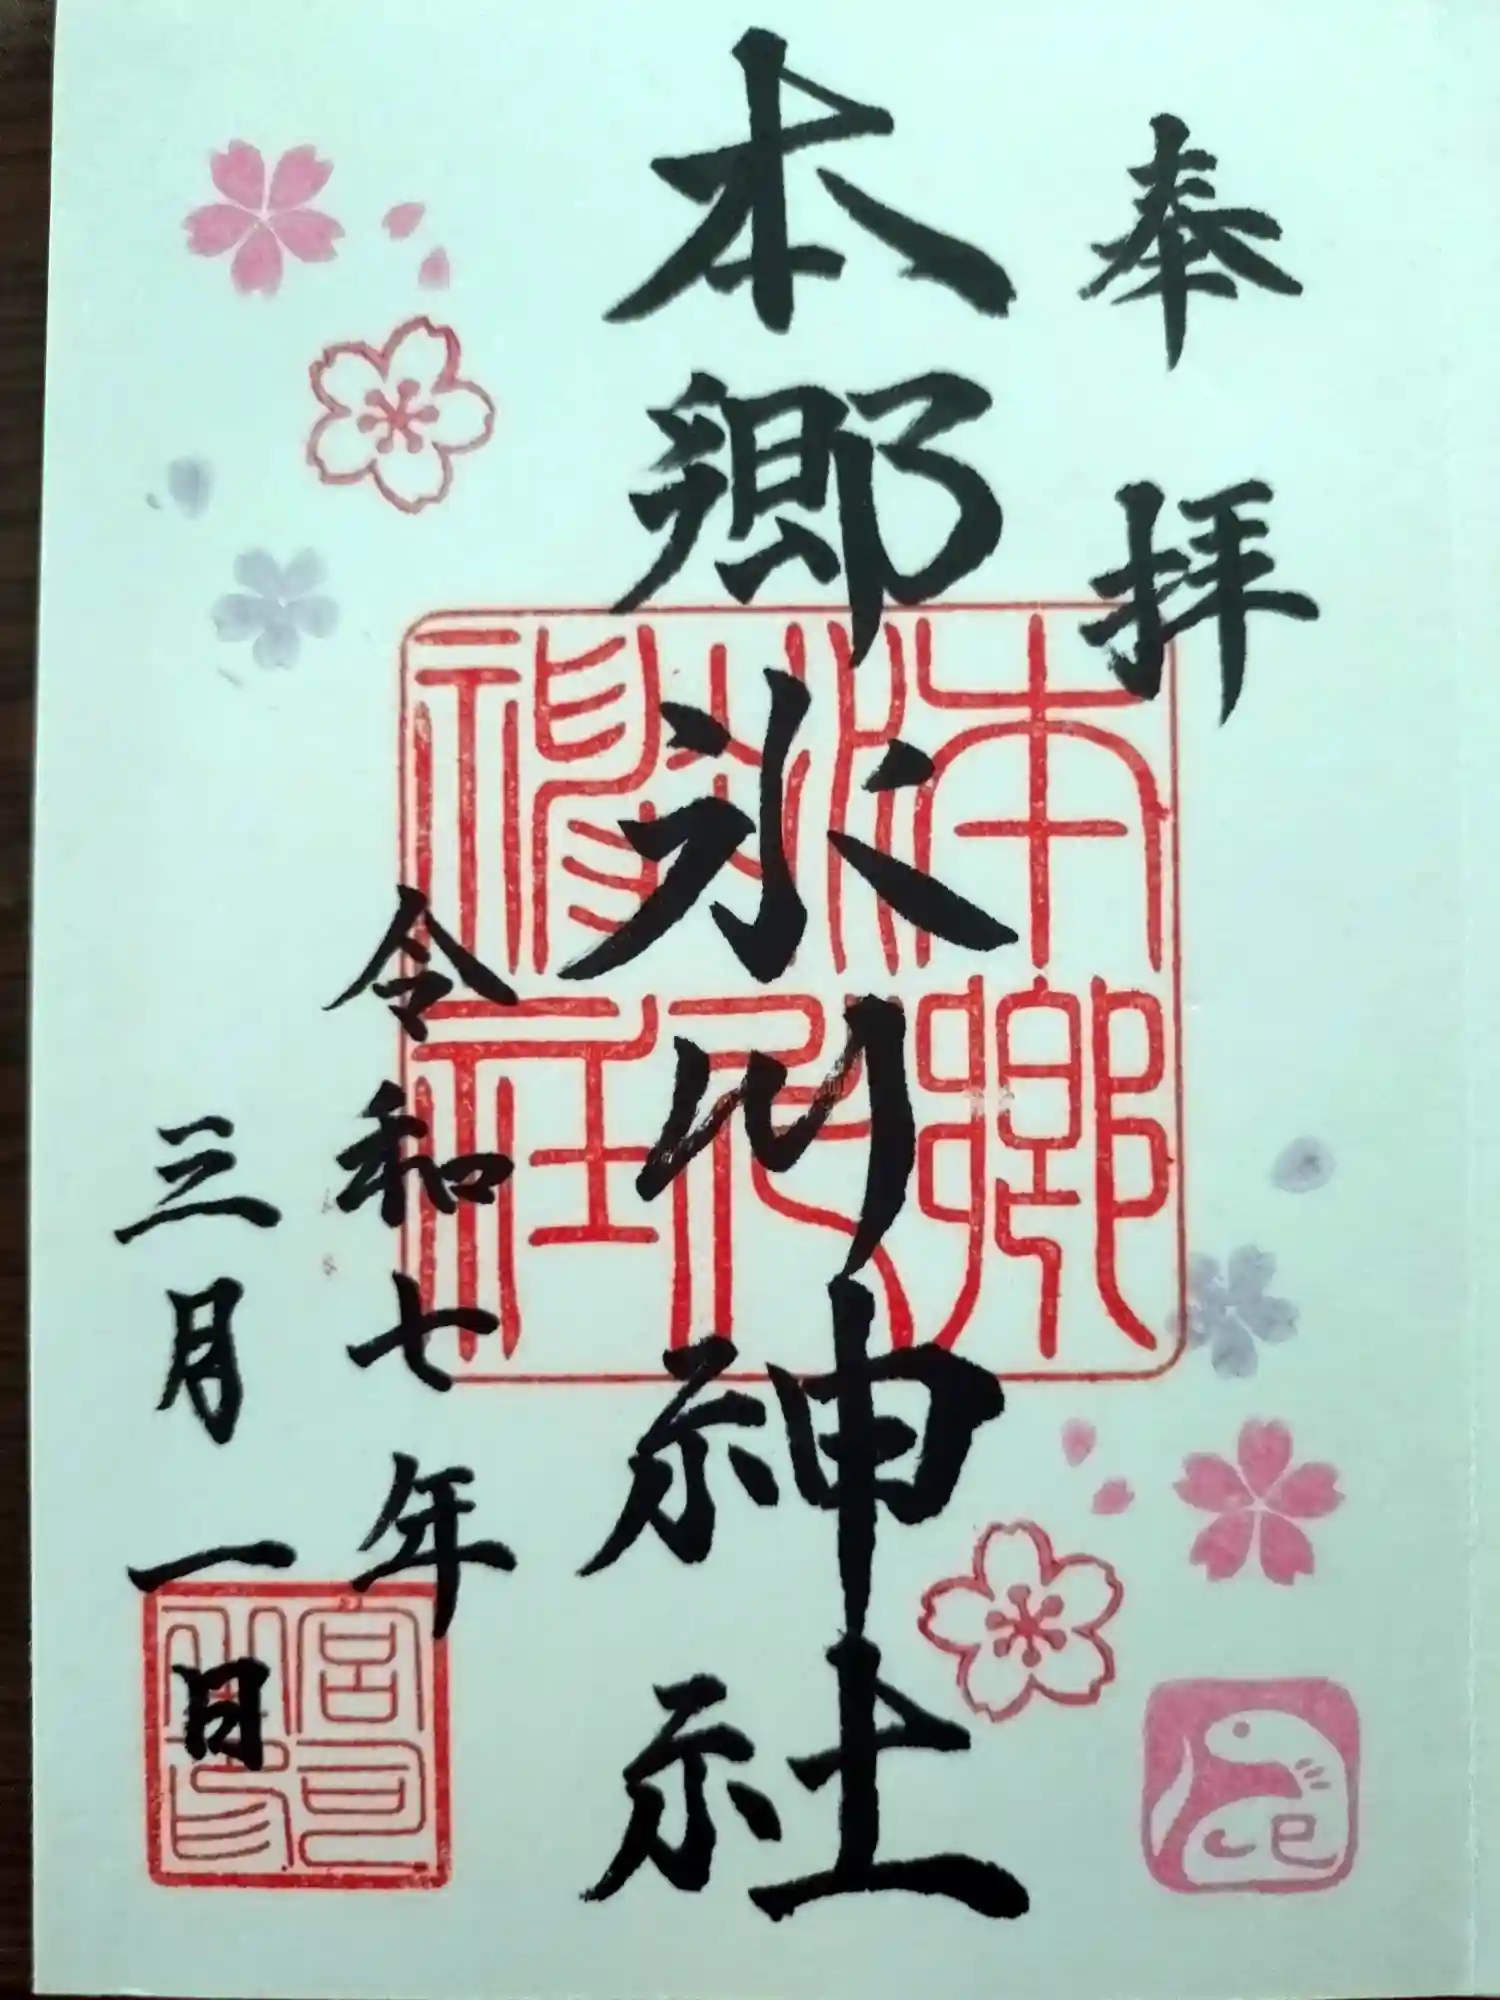 奉拝
本郷氷川神社
本郷氷川神社
令和七年
三月一日
宮司之印
巳